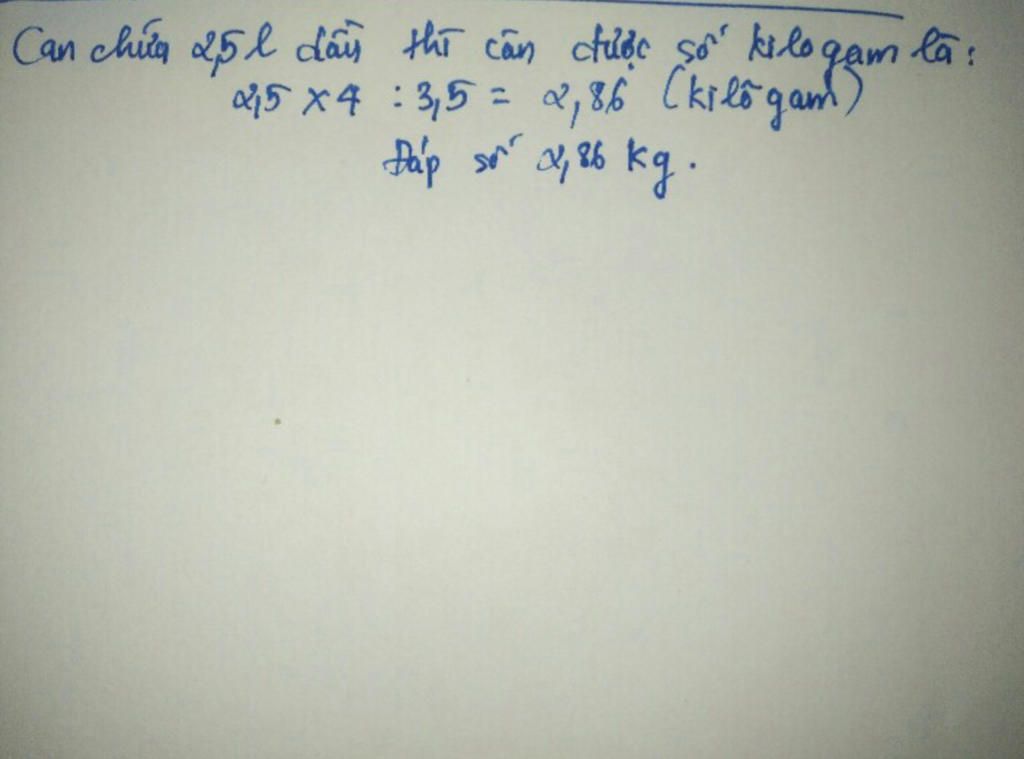 Can chứa 2,5l dầu thì cân được số kilogam là:
2,5 x 4 : 3,5 = 2,86 (kilôgam)
Đáp số 2,86 kg.